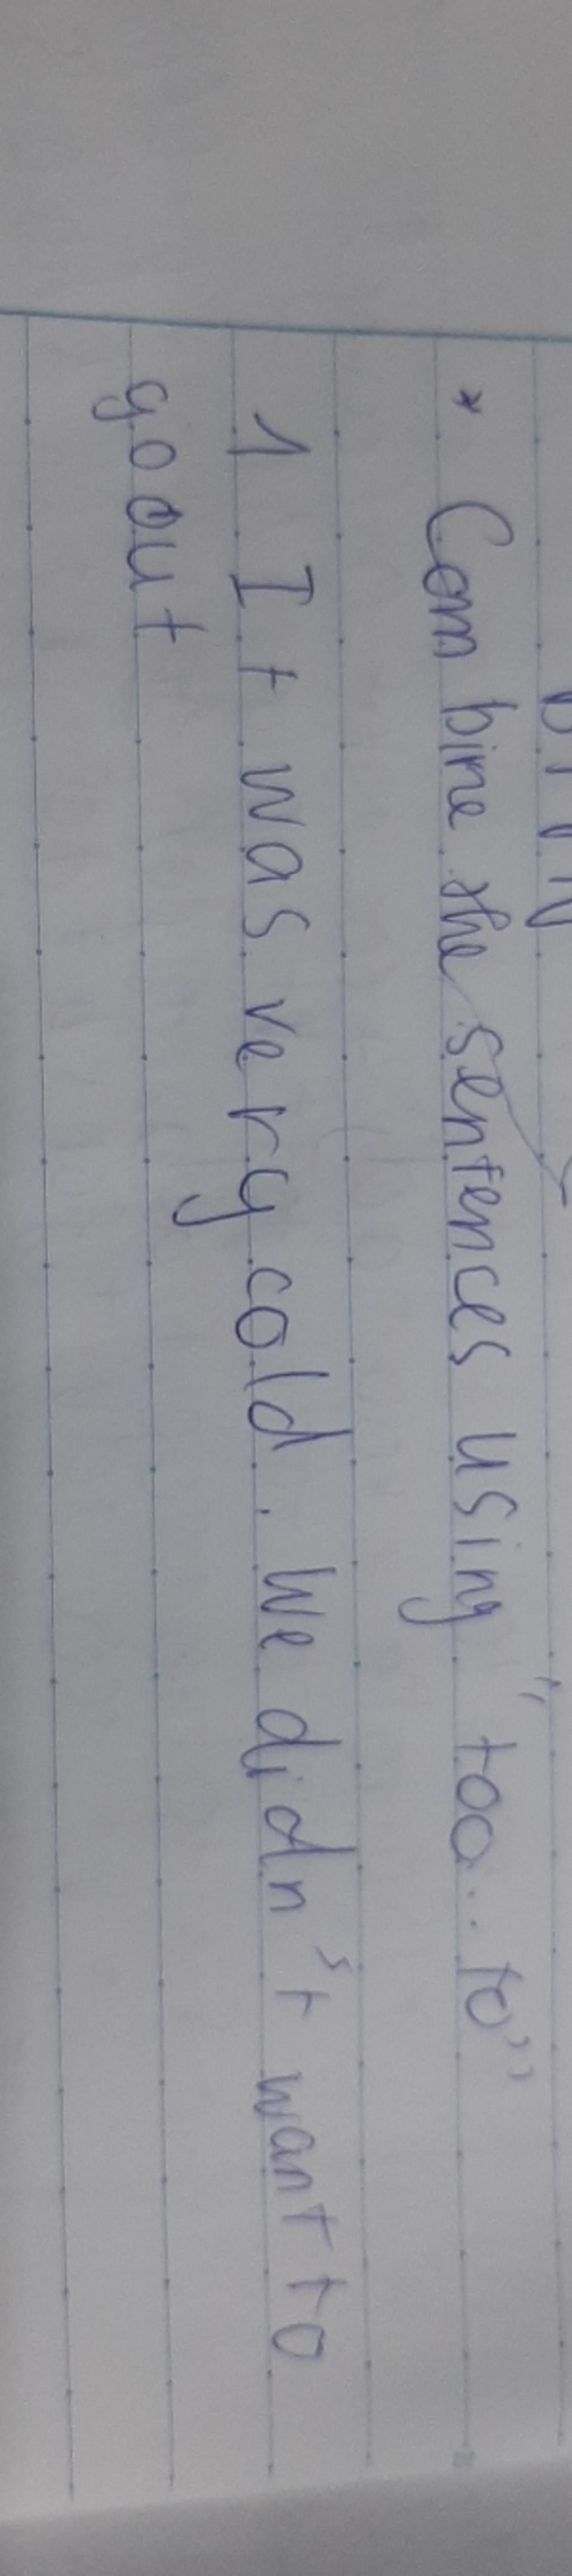 * Combine the sentences using "too..to"
1 It was very cold. We didn't want to
go out